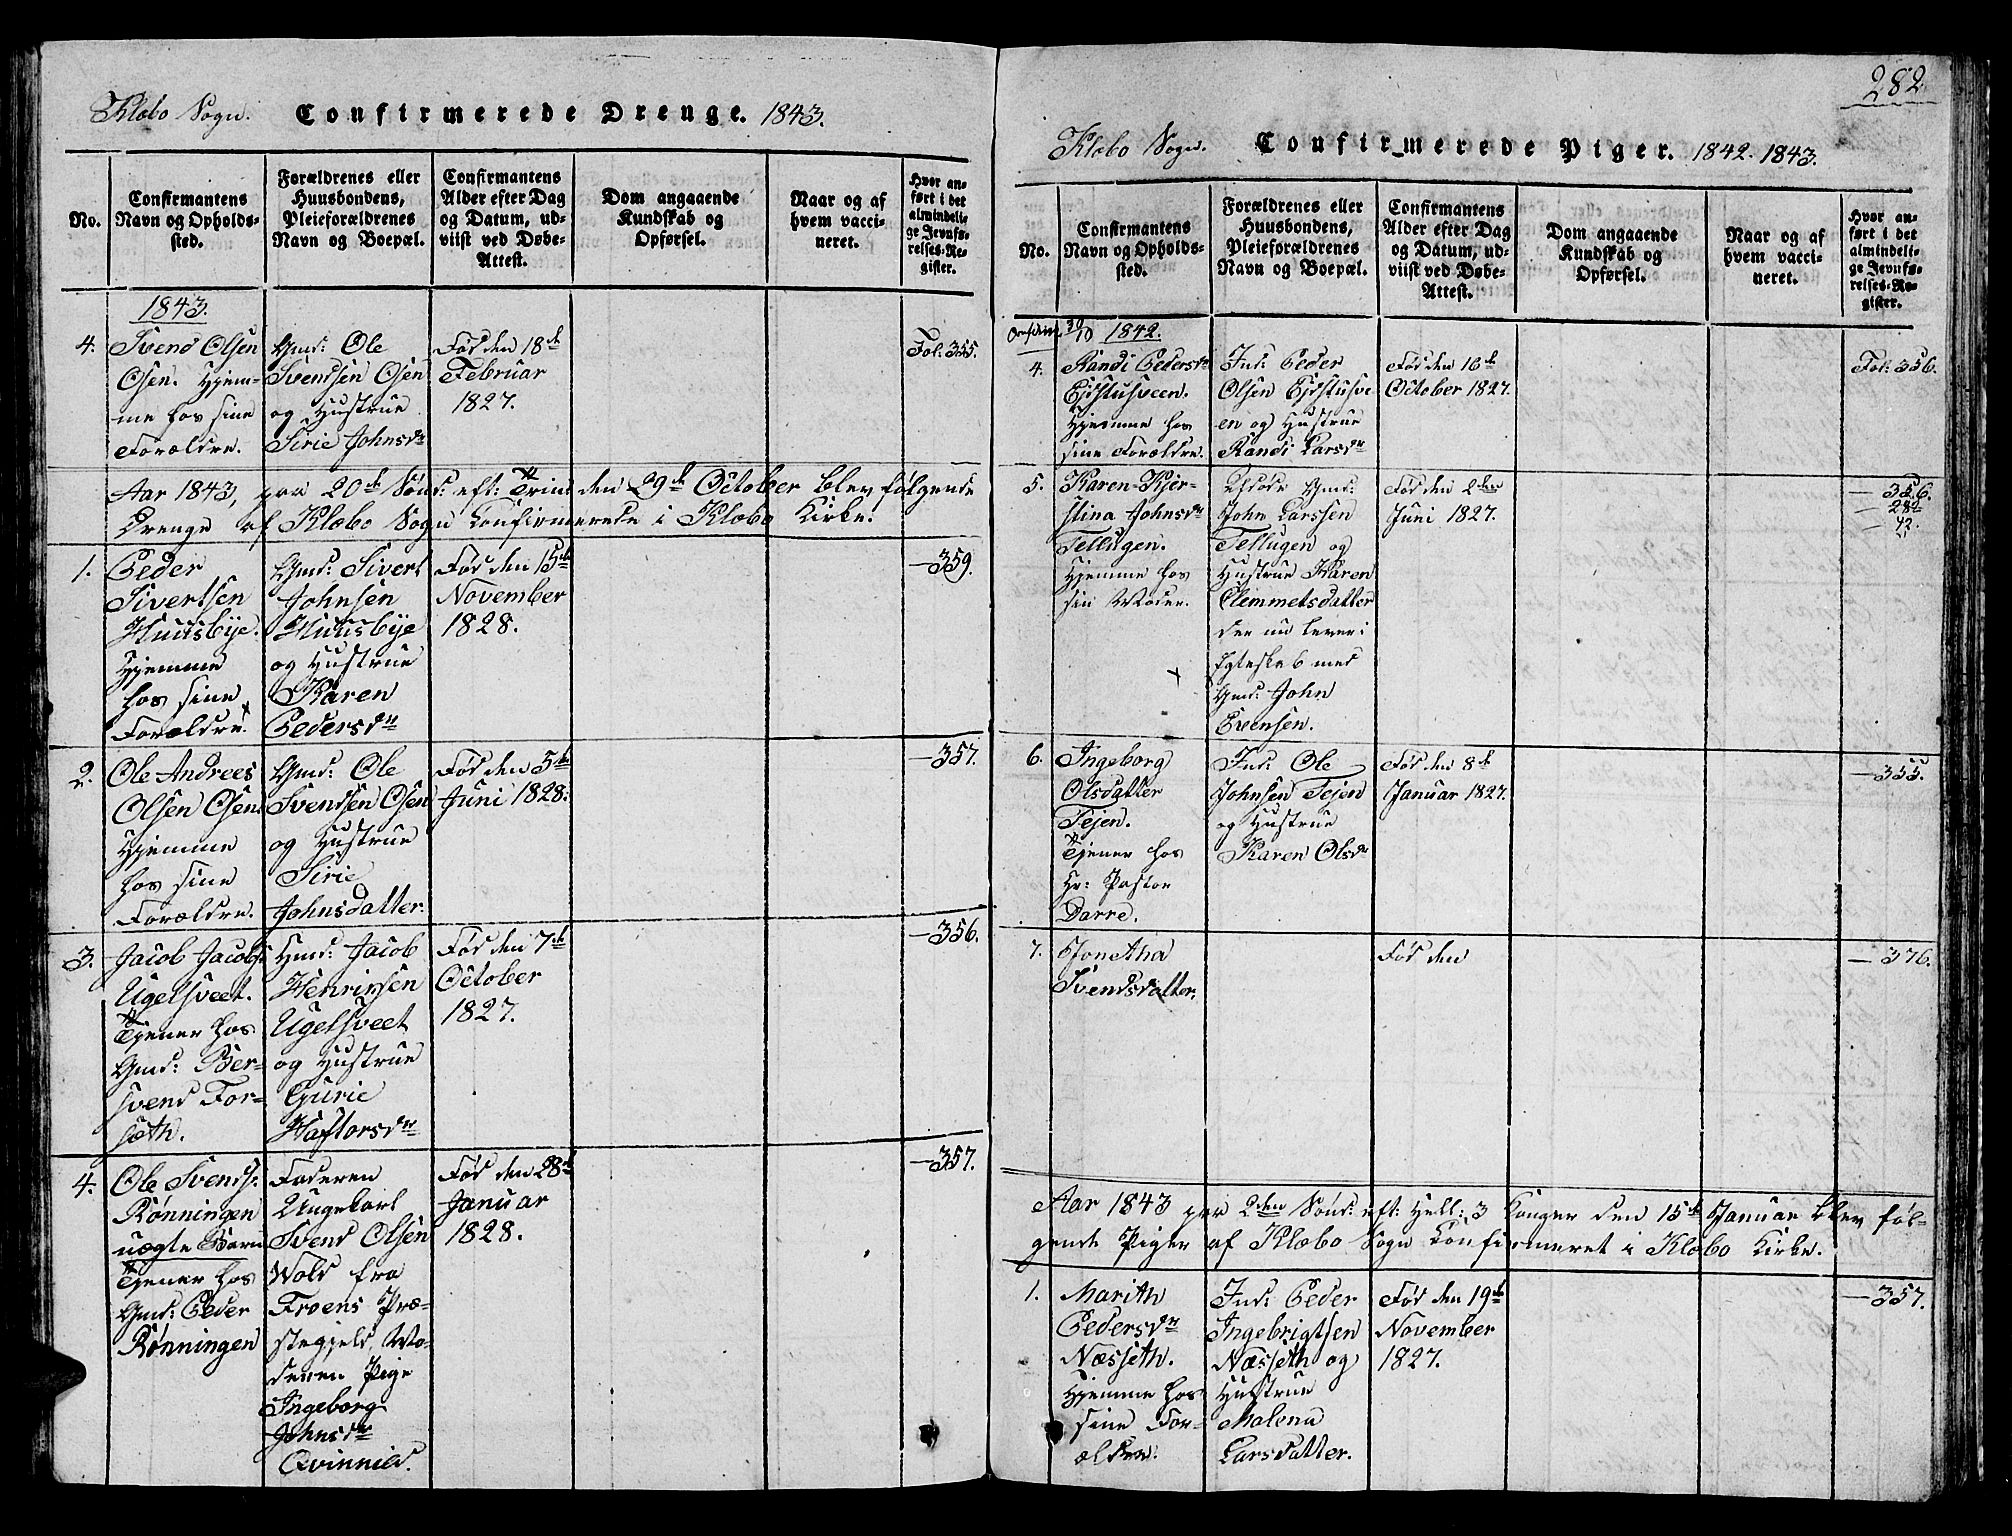 Klæbo Sogn. Confirmerede Drenge. 1843.
No.
Confirmantens
Navn og Opholds-
sted.
Forældrenes eller
Huusbondens,
Pleieforældrenes
Navn og Boepæl.
Confirmantens
Alder efter Dag
og Datum, ud-
viist ved Døbe-
Attest.
Dom angaaende
Kundskab og
Opførsel.
Naar og af
hvem vacci-
neret.
Hvor an-
ført i det
almindeli-
ge Jevnfø-
relses-Re-
gister.
1843.
4.
Svend Olsen
Osen. Hjem-
me hos sine
Forældre.
Gmd: Ole
Svendsen Osen
og Hustrue
Sirie Johnsdr
Fød den 18de
Februar
1827.
Fol. 355.
Aar 1843, paa 20de Sønd: eft: Trin: den 29de October blev følgende
Drenge af Klæbo Sogn Confirmerede i Klæbo Kirke.
1.
Peder
Sivertsen
Huusbye.
Hjemme
hos sine
Forældre.
Gmd: Sivert
Johnsen
Huusbye
og Hustrue
Karen
Pedersdr
Fød den 15de
November
1828.
— 359.
2.
Ole Andreas
Olsen Osen.
Hjemme
hos sine
Forældre.
Gmd: Ole
Svendsen Osen
og Hustrue
Sirie
Johnsdatter.
Fød den 5te
Juni 1828.
— 357.
3.
Jacob Jacobs:
Ugelsveet.
Tjener hos
Gmd: Ber-
svend For-
sæth.
Hmd: Jacob
Henrissen
Ugelsveet
og Hustrue
Gurie
Haftorsdr
Fød den 7de
October
1827.
— 356.
4.
Ole Svends:
Rønningen
uægte Barn
Tjener hos
Gmd: Peder
Rønningen
Faderen
Ungekarl
Svend Olsen
Wold fra
Froens Præ-
stegjeld, Mo-
deren Pige
Ingeborg
Johnsdr
Qvinnild.
Fød den 28de
Januar
1828.
— 357.
282
Klæbo Sogn. Confirmerede Piger. 1842. 1843.
No.
Confirmantens
Navn og Opholds-
sted.
Forældrenes eller
Huusbondens,
Pleieforældrenes
Navn og Boepæl.
Confirmantens
Alder efter Dag
og Datum, ud-
viist ved Døbe-
Attest.
Dom angaaende
Kundskab og
Opførsel.
Naar og af
hvem vacci-
neret.
Hvor an-
ført i det
almindeli-
ge Jevnfø-
relses-Re-
gister.
30/10 1842.
4.
Randi Pedersdr
Eidstusveen.
Hjemme hos
sine Forældre.
Ind: Peder
Olsen Eidstusve-
en og Hustrue
Randi Larsdr
Fød den 16de
October 1827.
Fol: 356.
5.
Karen-Kjer-
stina Johnsdr
Tellugen.
Hjemme hos
sin Moder.
Afdøde Gmd:
John Larssen
Tellugen og
Hustrue Karen
Clemmetsdatter
der nu lever i
Egteskab med
Gmd: John
Evensen.
Fød den 2den
Juni 1827.
— 356.
— 282
— 42.
6.
Ingeborg
Olsdatter
Tejen.
Tjener hos
Hr: Pastor
Darre.
Ind: Ole
Johnsen Tejen
og Hustrue
Karen Olsdr
Fød den 8de
Januar 1827.
— 355.
7.
Jonetha
Svendsdatter.
Fød den
— 376.
Aar 1843 paa 2den Sønd: eft: Hell: 3 Konger den 15de Januar blev føl-
gende Piger af Klæbo Sogn Confirmeret i Klæbo Kirke.
1.
Marith
Pedersdr
Næsseth.
Hjemme hos
sine For-
ældre.
Ind: Peder
Ingebrigtsen
Næsseth og
Hustrue
Malena
Larsdatter.
Fød den 19de
November
1827.
— 357.